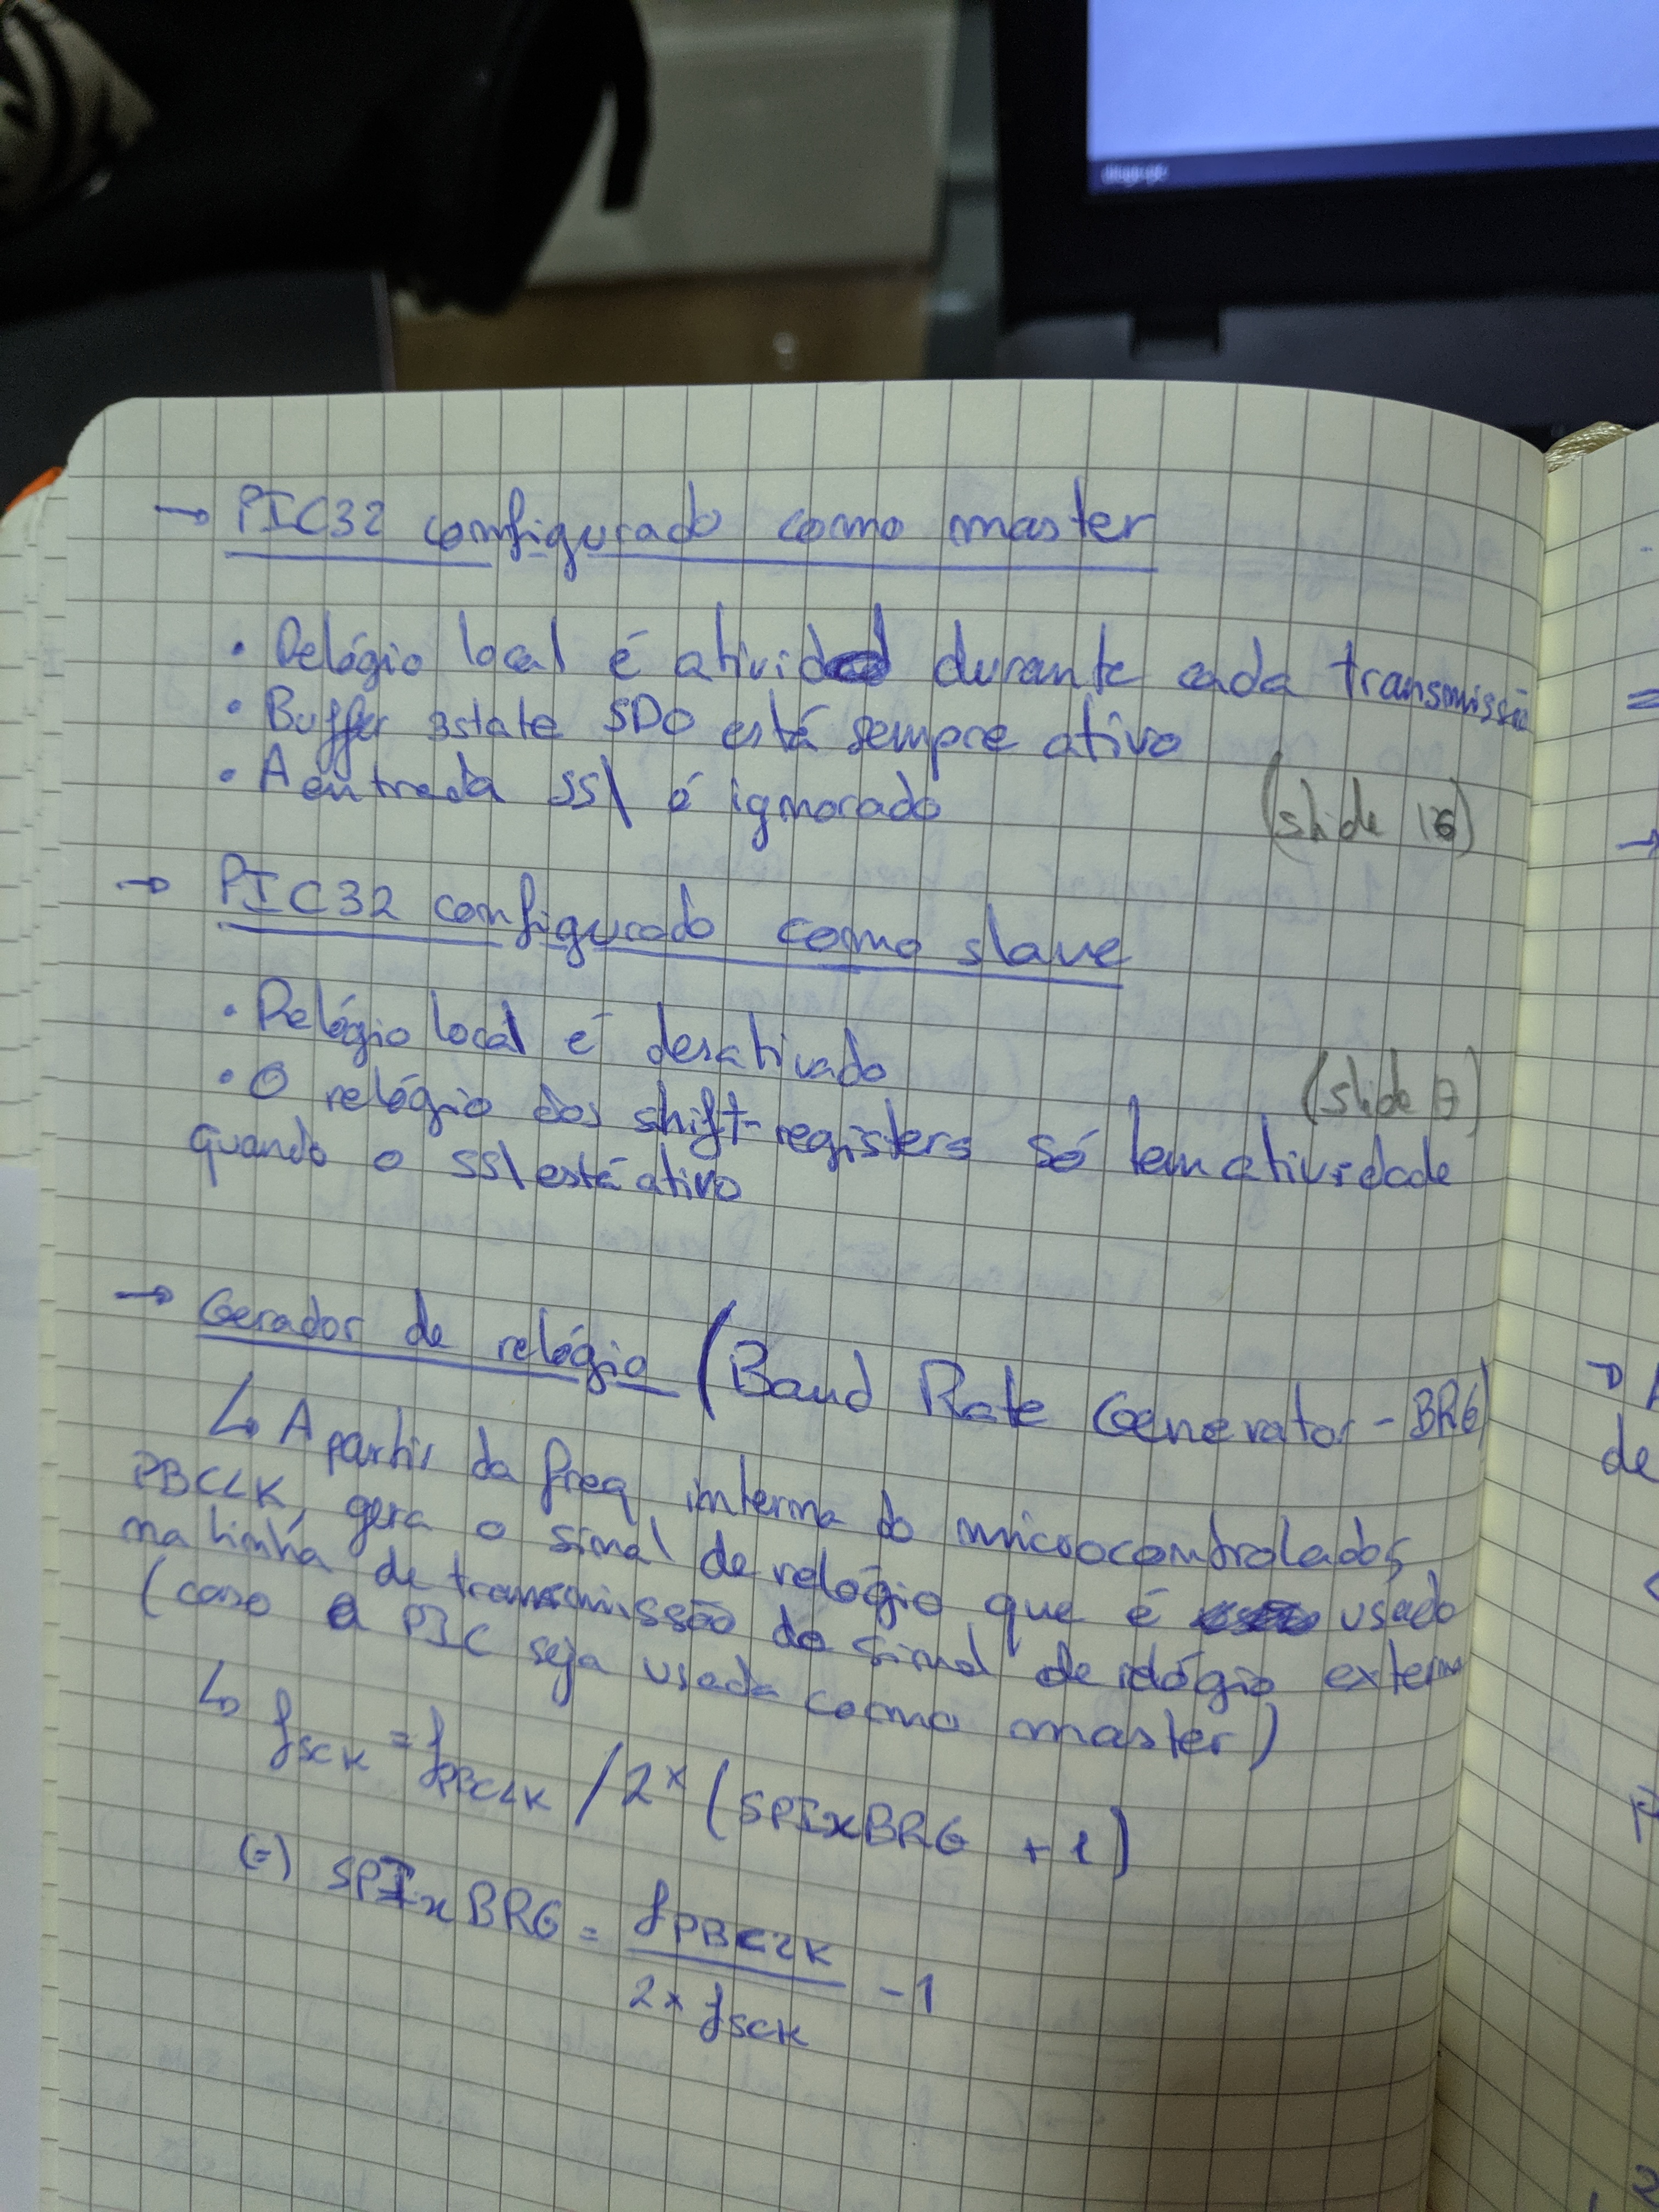 → PIC32 configurado como master
• Relógio local é ativid durante cada transmissão
• Buffer 3state SDO está sempre ativo
• A entrada SS\ é ignorado
(slide 16)
→ PIC32 configurado como slave
• Relógio local é desativado
(slide 7)
• O relógio dos shift-registers só tem atividade
quando o SS\ está ativo
→ Gerador de relógio (Baud Rate Generator - BRG)
↳ A partir da freq interna do microcontrolador,
PBCLK, gera o sinal de relógio que é usado
na linha de transmissão do sinal de relógio externo
(caso a PIC seja usada como master)
↳ fSCK = fPBCLK / 2 x (SPIxBRG + 1)
(=) SPIxBRG = fPBCLK / 2 x fSCK - 1